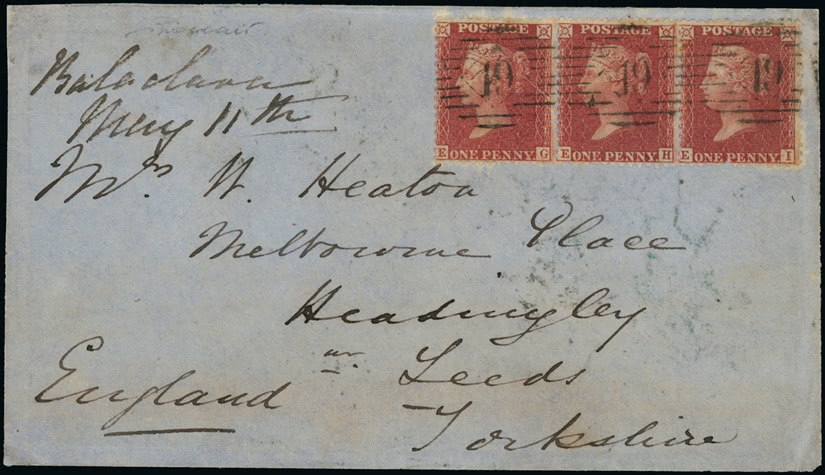 POSTAGE POSTAGE POSTAGE
19 19 19
E ONE PENNY G E ONE PENNY H E ONE PENNY I
Balaclava
May 11th
Mrs. W. Heaton
Melbourne Place
Headingley
nr. Leeds
England
Yorkshire